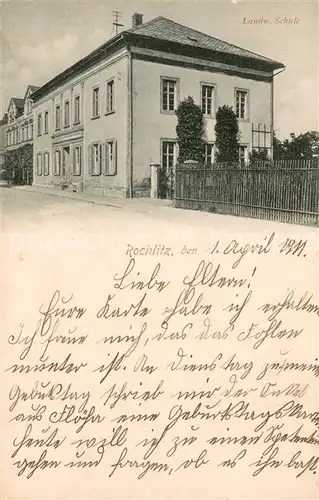 Landw. Schule
Rochlitz, den 1. April 1911.
Liebe Eltern!
Eure Karte habe ich erhalten
Ich freue mich, das das Fohlen
munter ist. An Dienstag zu meinem
Geburtstag schrieb mir der Onkel
aus Flöha eine Geburtstagskarte
heute will ich zu einen
gehen und fragen, ob es ihn baßt.